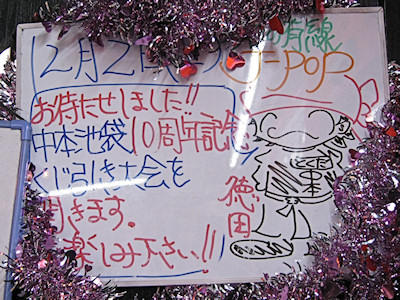 12月2日
有線
J-POP
お待たせしました!!
中本池袋10周年記念
くじ引き大会を
開きます。
楽しみ下さい!!
とくだ
徳田